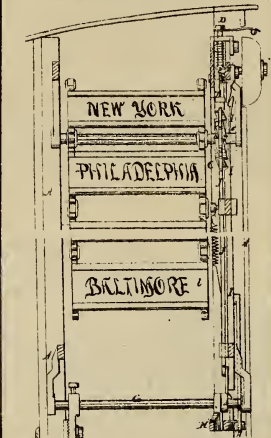 NEW YORK
PHILADELPHIA
BALTIMORE